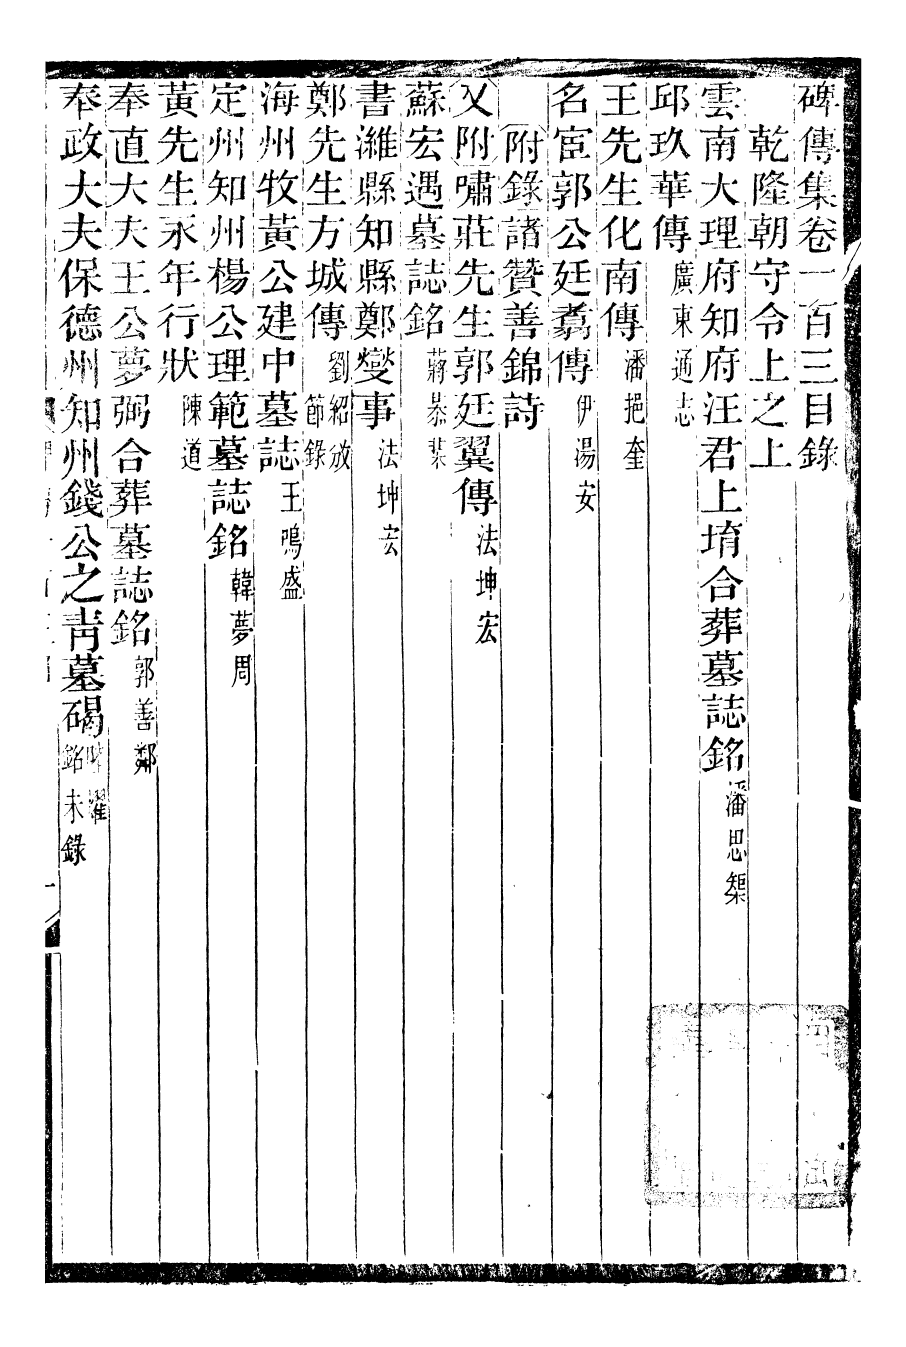 碑傳集卷一百三目錄
乾隆朝守令上之上
雲南大理府知府汪君上堉合葬墓誌銘 潘思榘
邱玖華傳 廣東通志
王先生化南傳 潘挹奎
名宦郭公廷翥傳 伊湯安
附錄諸贊善錦詩
又附嘯莊先生郭廷翼傳 法坤宏
蘇宏遇墓誌銘 蔣恭棐
書濰縣知縣鄭燮事 法坤宏
鄭先生方城傳 劉紹攽 節錄
海州牧黃公建中墓誌 王鳴盛
定州知州楊公理範墓誌銘 韓夢周
黃先生永年行狀 陳道
奉直大夫王公夢弼合葬墓誌銘 郭善鄰
奉政大夫保德州知州錢公之青墓碣 陸燿 銘未錄